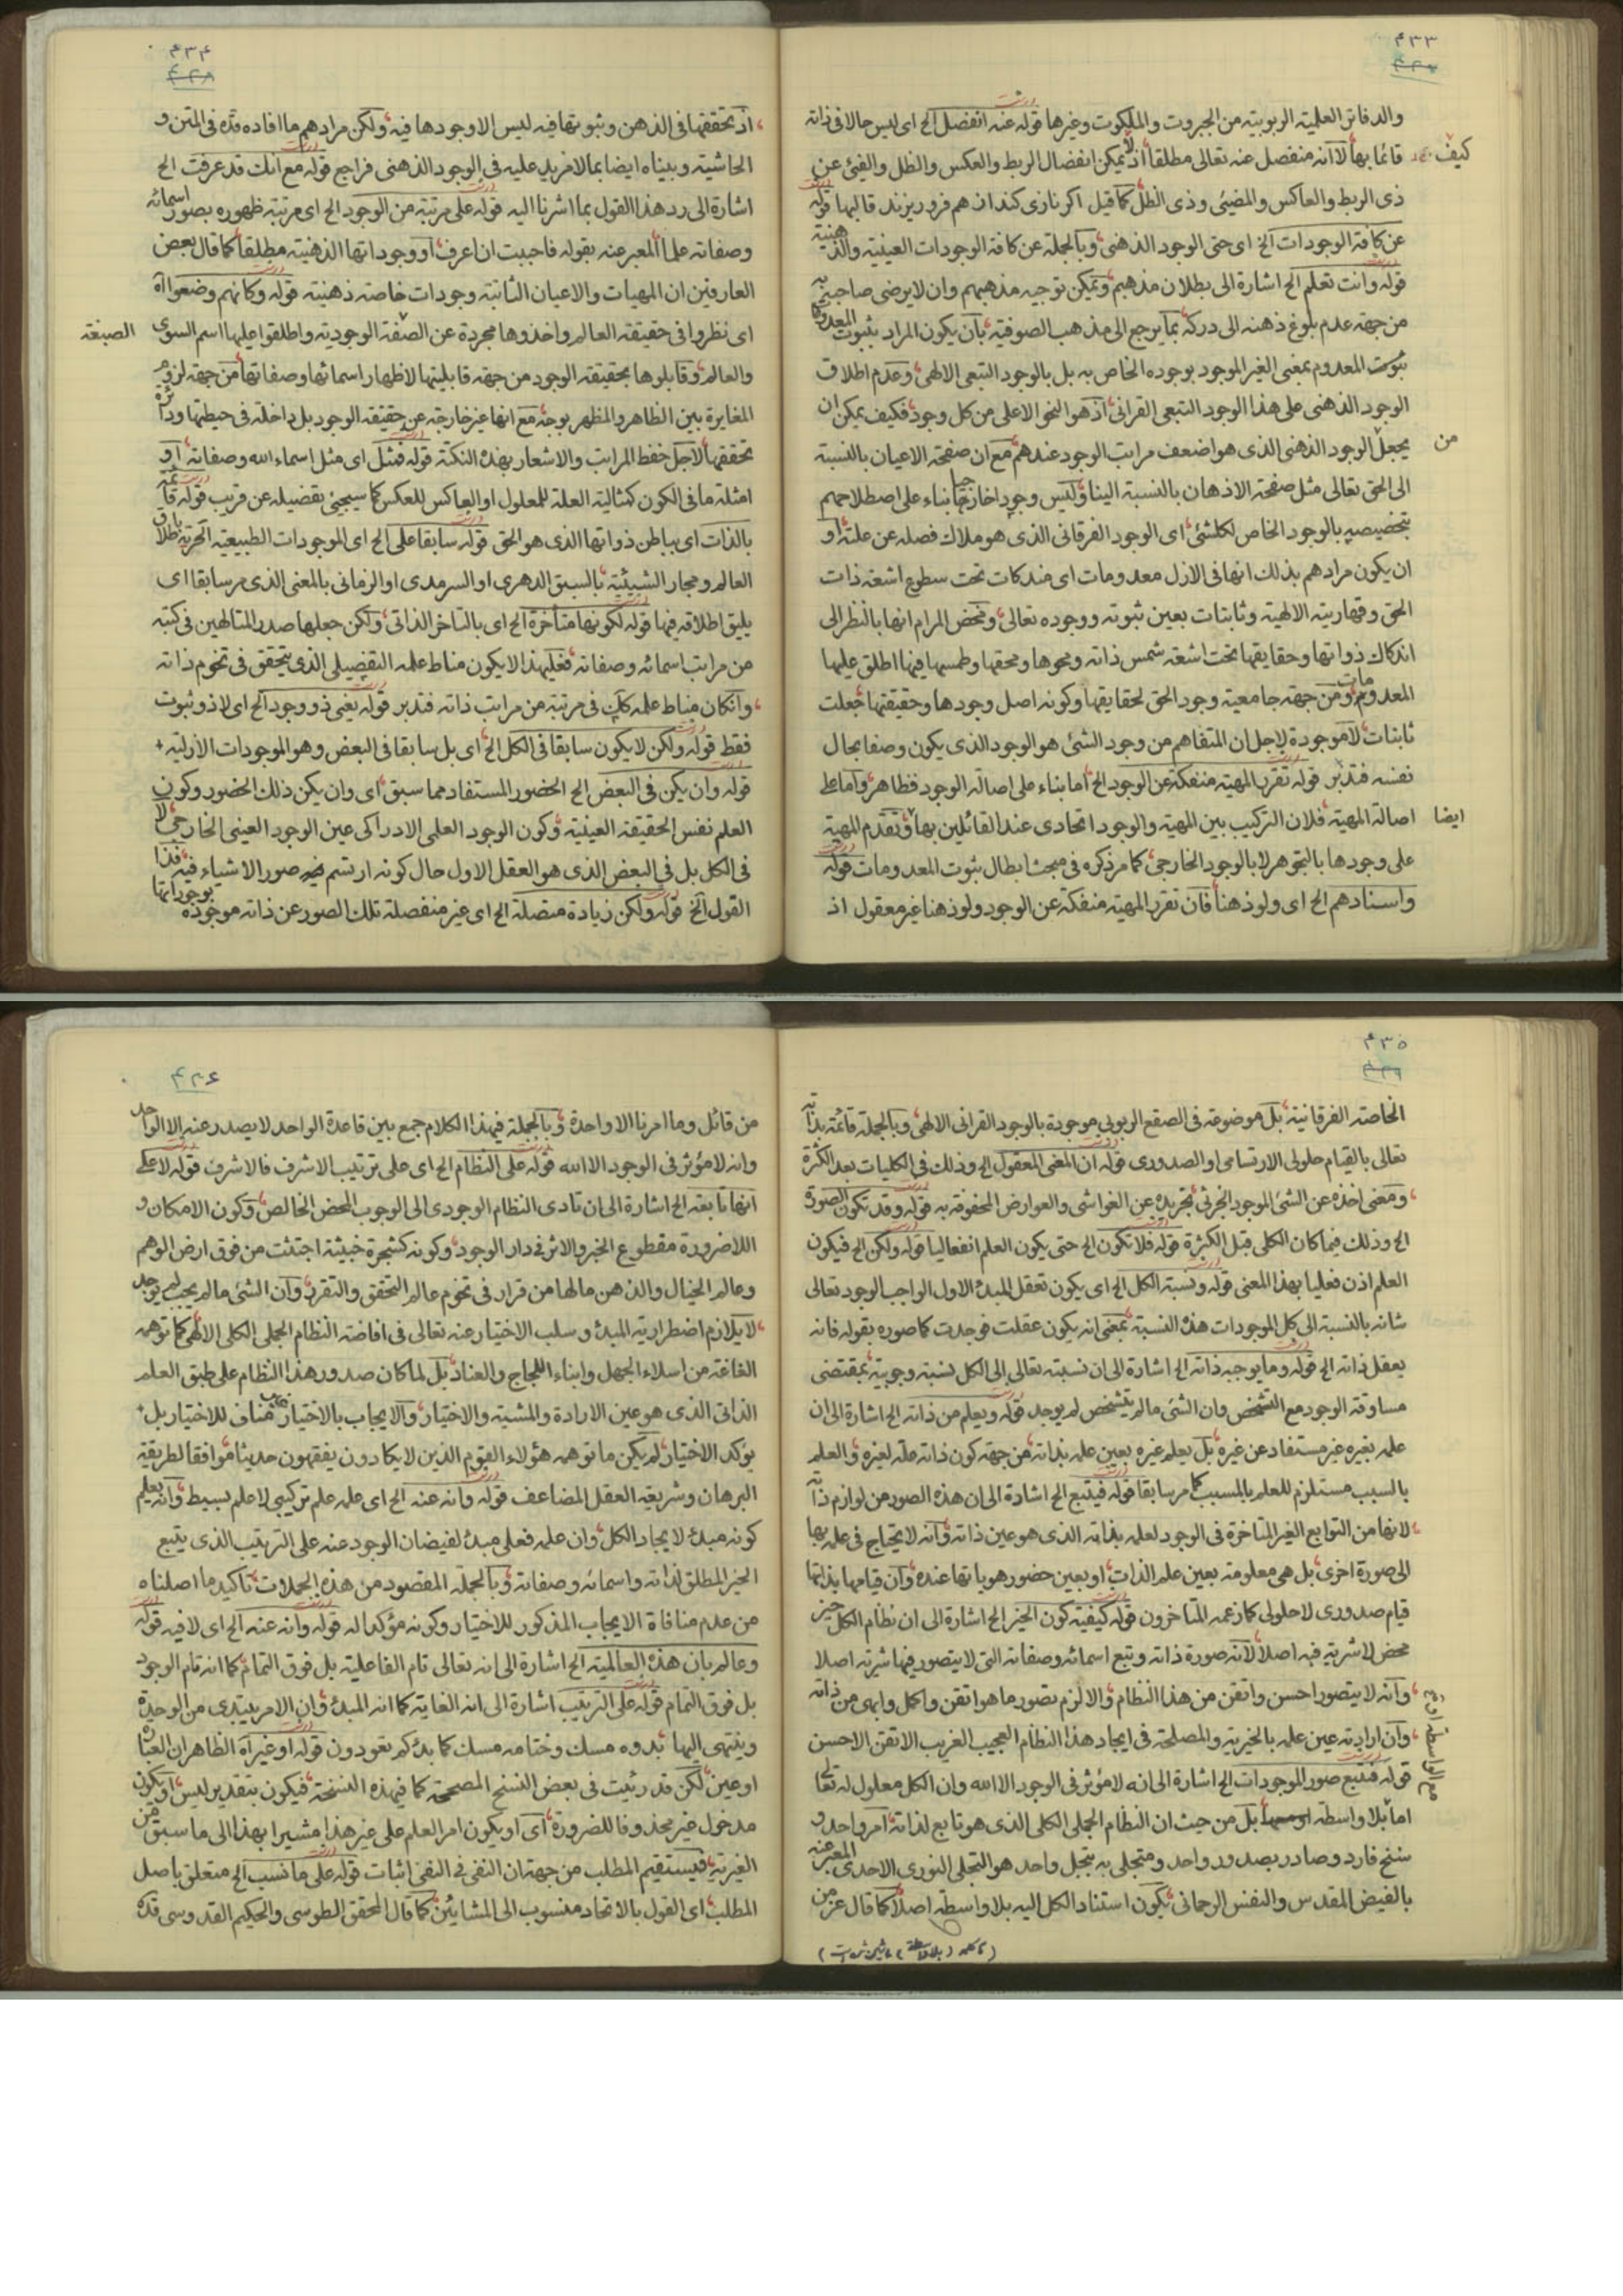 ۴۳۳
والدقائق العلمیة الربوبیة من الجبروت والملکوت وغیرها قوله عنه انفصل الخ ای لیس حالا فی ذاته
کیف قائما بها لا انه منفصل عنه تعالی مطلقا اذ لا یمکن انفصال الربط والعکس والظل والفیئ عن
ذی الربط والعاکس والمضیئ وذی الظل کما قیل اکر نازی کند از هم فرو ریزند قالبها قوله
عن کافة الوجودات الخ ای حتی الوجود الذهنی وبالجملة عن کافة الوجودات العینیة والذهنیة
قوله وانت تعلم الخ اشارة الی بطلان مذهبهم ویمکن توجیه مذهبهم وان لا یرضی صاحبه به
من جهة عدم بلوغ ذهنه الی درکه بما یرجع الی مذهب الصوفیة بان یکون المراد بثبوت المعدومات
ثبوت المعدوم بمعنی الغیر الموجود بوجوده الخاص به بل بالوجود التبعی الالهی وعدم اطلاق
الوجود الذهنی علی هذا الوجود التبعی القرانی اذ هو النحو الاعلی من کل وجود فکیف یمکن ان
یجعل من الوجود الذهنی الذی هو اضعف مراتب الوجود عندهم مع ان صفحة الاعیان بالنسبة
الی الحق تعالی مثل صفحة الاذهان بالنسبة الینا ولیس وجودا خارجیا بناء علی اصطلاحهم
بتخصیصه بالوجود الخاص لکلشئ ای الوجود الفرقانی الذی هو ملاک فصله عن علته او
ان یکون مرادهم بذلک انها فی الازل معدومات ای مندکات تحت سطوع اشعة ذات
الحق وقهاریته الالهیة وثابتات بعین ثبوته ووجوده تعالی ومحض المرام انها بالنظر الی
اندکاک ذواتها وحقایقها تحت اشعة شمس ذاته ومحوها ومحقها وطمسها فیها اطلق علیها
المعدومات ومن جهة جامعیة وجود الحق لحقایقها وکونه اصل وجودها وحقیقتها جعلت
ثابتات لا موجودة لاجل ان المتفاهم من وجود الشئ هو الوجود الذی یکون وصفا بحال
نفسه فتدبر قوله تقرر المهیة منفکة عن الوجود الخ اما بناء علی اصالة الوجود فظاهر واما علی
اصالة المهیة ایضا فلان الترکیب بین المهیة والوجود اتحادی عند القائلین بها وتقدم المهیة
علی وجودها بالتجوهر لا بالوجود الخارجی کما مر ذکره فی مبحث ابطال ثبوت المعدومات قوله
واسنادهم الخ ای ولو ذهنا فان تقرر المهیة منفکة عن الوجود ولو ذهنا غیر معقول اذ
۴۳۴
اذ تحققها فی الذهن وثبوتها فیه لیس الا وجودها فیه ولکن مرادهم ما افاده قده فی المتن و
الحاشیة وبیناه ایضا بما لا مزید علیه فی الوجود الذهنی فراجع قوله مع انک قد عرفت الخ
اشارة الی رد هذا القول بما اشرنا الیه قوله علی مرتبة من الوجود الخ ای مرتبة ظهوره بصور اسمائه
وصفاته علما المعبر عنه بقوله فاحببت ان اعرف او وجوداتها الذهنیة مطلقا کما قال بعض
العارفین ان المهیات والاعیان الثابتة وجودات خاصة ذهنیة قوله وکانهم وضعوا اه
ای نظروا فی حقیقة العالم واخذوها مجردة عن الصفة الوجودیة واطلقوا علیها اسم السوی
الصبغة
والعالم وقابلوها بحقیقة الوجود من جهة قابلیتها لاظهار اسمائها وصفاتها من جهة لزوم
المغایرة بین الظاهر والمظهر بوجه مع انها غیر خارجة عن حقیقة الوجود بل داخلة فی حیطتها ودائرة
تحققها لاجل حفظ المراتب والاشعار بهذه النکتة قوله فمثل ای مثل اسماء الله وصفاته او
امثلة ما فی الکون کمثالیة العلة للمعلول او العاکس للعکس کما سیجئ تفصیله عن قریب قوله قائمة
بالذات ای بباطن ذواتها الذی هو الحق قوله سابقا علی الخ ای الموجودات الطبیعیة الحریة باطلاق
العالم ومجار الشیئیة بالسبق الدهری او السرمدی او الزمانی بالمعنی الذی مر سابقا ای
یلیق اطلاقه فیها قوله لکونها متأخرة الخ ای بالتاخر الذاتی ولکن جعلها صدر المتالهین فی کتبه
من مراتب اسمائه وصفاته فعلیهذا لا یکون مناط علمه التفصیلی الذی یتحقق فی تخوم ذاته
وان کان مناط علمه فی مرتبة من مراتب ذاته فتدبر قوله یعنی ذو وجود الخ ای لا ذو ثبوت
فقط قوله ولکن لا یکون سابقا فی الکل الخ ای بل سابقا فی البعض وهو الموجودات الازلیة
قوله وان یکن فی البعض الخ الحضور المستفاد مما سبق ای وان یکن ذلک الحضور وکون
العلم نفس الحقیقة العینیة وکون الوجود العلمی الادراکی عین الوجود العینی الخارجی لا
فی الکل بل فی البعض الذی هو العقل الاول حال کونه ارتسم صور الاشیاء فیه فذا
القول الخ قوله ولکن زیادة متصلة الخ ای غیر منفصلة تلک الصور عن ذاته موجودة بوجوداتها
۴۳۵
الخاصة الفرقانیة بل موضوعة فی الصقع الربوبی موجودة بالوجود القرانی الالهی وبالجملة قائمة بذاته
تعالی بالقیام حلولی الارتسامی او الصدوری قوله ان المعنی المعقول الخ وذلک فی الکلیات بعد الکثرة
ومعنی اخذه عن الشئ الموجود الجزئی تجریده عن الغواشی والعوارض المحفوفة به قوله وقد تکون الصورة
الخ وذلک فیما کان الکلی قبل الکثرة قوله فلا تکون الخ حتی یکون العلم انفعالیا قوله ولکن الخ فیکون
العلم اذن فعلیا بهذا المعنی قوله ونسبة الکل الخ ای یکون تعقل المبدء الاول الواجب الوجود تعالی
شانه بالنسبة الی کل الموجودات هذه النسبة بمعنی انه یکون عقلت فوجدت کما صوره بقوله فانه
یعقل ذاته الخ قوله وما یوجبه ذاته الخ اشارة الی ان نسبته تعالی الی الکل نسبة وجوبیة بمقتضی
مساوقة الوجود مع التشخص وان الشئ ما لم یتشخص لم یوجد قوله ویعلم من ذاته الخ اشارة الی ان
علمه بغیره غیر مستفاد عن غیره بل یعلم غیره بعین علمه بذاته من جهة کون ذاته علة لغیره والعلم
بالسبب مستلزم للعلم بالمسبب کما مر سابقا قوله فیتبع الخ اشارة الی ان هذه الصور من لوازم ذاته
لانها من التوابع الغیر المتاخرة فی الوجود لعلمه بذاته الذی هو عین ذاته وانه لا یحتاج فی علمه بها
الی صورة اخری بل هی معلومة بعین علم الذات او بعین حضور هویاتها عنده وان قیامها بذاتها
قیام صدوری لا حلولی کما زعمه المتاخرون قوله کیفیة کون الخیر الخ اشارة الی ان نظام الکل خیر
محض لا شریة فیه اصلا لانه صورة ذاته وتبع اسمائه وصفاته التی لا یتصور فیها شریة اصلا
وانه لا یتصور احسن واتقن من هذا النظام والا لزم تصور ما هو اتقن واکمل وابهی من ذاته
وان ارادته عین علمه بالخیریة والمصلحة فی ایجاد هذا النظام العجیب الغریب الاتقن الاحسن
قوله فیتبع صور الموجودات الخ اشارة الی انه لا مؤثر فی الوجود الا الله وان الکل معلول له تعالی
اما بلا واسطة بل من حیث ان النظام الجملی الکلی الذی هو تابع لذاته امر واحد و
سنخ فارد وصادر بصدور واحد ومتجلی به بتجل واحد هو التجلی النوری الاحدی المعبر عنه
بالفیض المقدس والنفس الرحمانی یکون استناد الکل الیه بلا واسطة اصلا کما قال عز من
۴۳۶
من قائل وما امرنا الا واحدة وبالجملة فبهذا الکلام جمع بین قاعدة الواحد لا یصدر عنه الا الواحد
وانه لا مؤثر فی الوجود الا الله قوله علی النظام الخ ای علی ترتیب الاشرف فالاشرف قوله لا علی
انها تابعة الخ اشارة الی ان تادی النظام الوجودی الی الوجوب المحض الخالص وکون الامکان و
اللاضرورة مقطوع الخبر والاثر فی دار الوجود وکونه کشجرة خبیثة اجتثت من فوق ارض الوهم
وعالم الخیال والذهن ما لها من قرار فی تخوم عالم التحقق والتقرر وان الشئ ما لم یجب لم یوجد
لا یلازم اضطراریة المبدء وسلب الاختیار عنه تعالی فی افاضة النظام الجملی الکلی الالهی کما توهمه
الفاغة من اسلاء الجهل وابناء اللجاج والعناد بل لما کان صدور هذا النظام علی طبق العلم
الذاتی الذی هو عین الارادة والمشیة والاختیار والایجاب بالاختیار غیر مناف للاختیار بل
یؤکد الاختیار لم یکن ما توهمه هؤلاء القوم الذین لا یکادون یفقهون حدیثا موافقا لطریقة
البرهان وشریعة العقل المضاعف قوله وانه عنه الخ ای علمه علم ترکیبی لا علم بسیط وانه یعلم
کونه مبدء لایجاد الکل وان علمه فعلی مبدء لفیضان الوجود عنه علی الترتیب الذی یتبع
الخیر المطلق لذاته واسمائه وصفاته وبالجملة المقصود من هذه الجملات تاکید ما اصلناه
من عدم منافاة الایجاب المذکور للاختیار وکونه مؤکدا له قوله وانه عنه الخ ای لا فیه قوله
وعالم بان هذه العالمیة الخ اشارة الی انه تعالی تام الفاعلیة بل فوق التمام کما انه تام الوجود
بل فوق التمام قوله علی الترتیب اشارة الی انه الغایة کما انه المبدء وان الامر یبتدی من الوحدة
وینتهی الیها بدوه مسک وختامه مسک کما بدئکم تعودون قوله او غیر اه الظاهر ان العبارة
او عین لکن قد رئیت فی بعض النسخ المصححة کما فیهذه النسخة فیکون بتقدیر لیس او یکون
مدخول غیر محذوفا للضرورة ای او یکون امر العلم علی غیر هذا مشیرا بهذا الی ما سبق من
الغیریة فیستقیم المطلب من جهة ان النفی فی النفی اثبات قوله علی ما نسب الخ متعلق باصل
المطلب ای القول بالاتحاد منسوب الی المشایین کما قال المحقق الطوسی والحکیم القدوسی قده